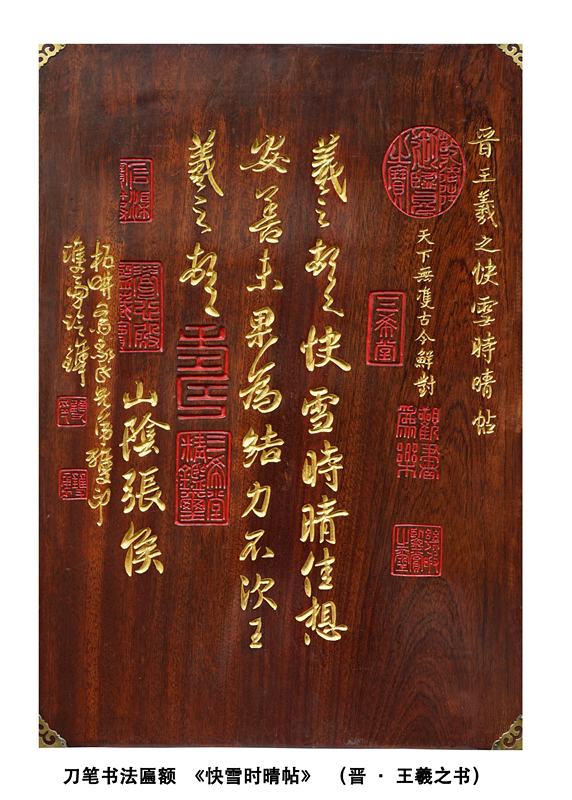 晋王羲之快雪時晴帖
天下無雙古今鮮對
三希堂
觀書為樂
羲之頓首快雪時晴佳想
安善未果為結力不次王
羲之頓首
三希堂精鑑璽
山陰張侯
刀笔书法匾额 《快雪时晴帖》 （晋 · 王羲之书）